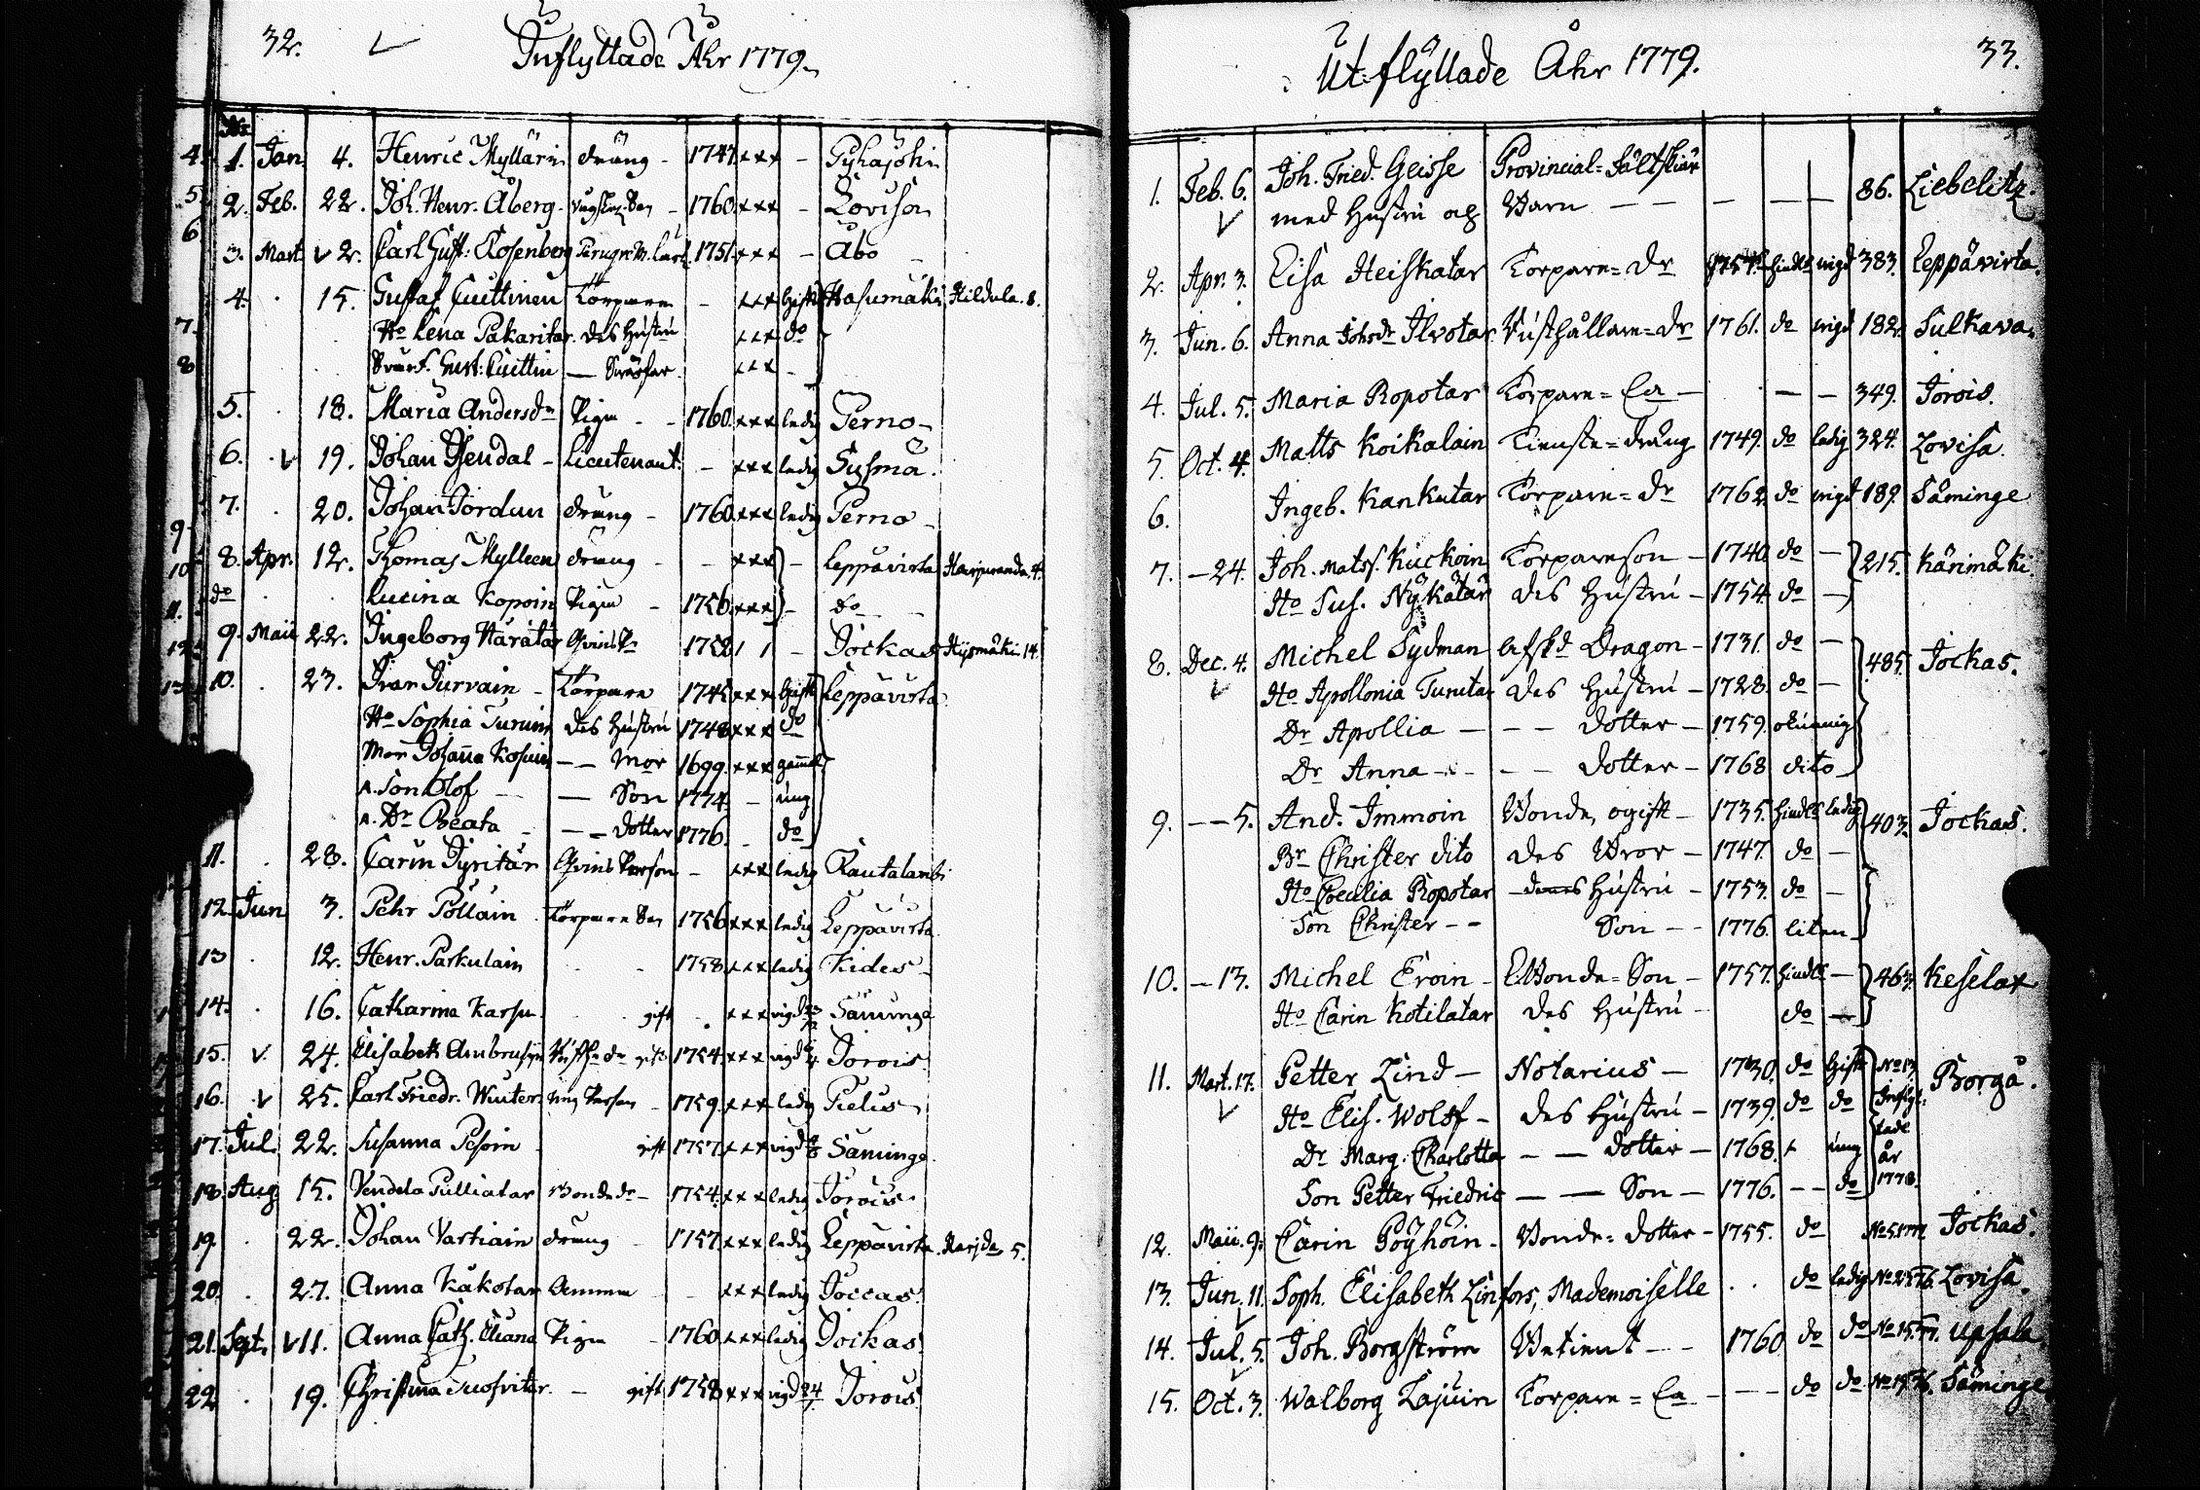 32.
Inflyttade Åhr 1779.
No
1. Jan 4. Henric Myllärin dräng - 1747. xxx - Pyhäjoki
2. Feb. 22. Joh. Henr. Åberg - 1760. xxx - Lovisa
3. Mart 2. Carl Gust: Rosenberg 1751. xxx - Åbo
4. 15. Gustaf Cuittinen Torpare - xxx Gift Hasumäki Hildula. 8.
Ho Lena Pakaritar. des Hustru xxx do
Gust: Cuittin — Swärfar. xxx -
5. 18. Maria Andersdr Piga - - 1760. xxx ledig Perno -
6. 19. Johan Lieutenant. - xxx ledig Sysmä.
7. 20. Johan Jordan dräng - 1760. xxx ledig Perno -
8. Apr. 12. Thomas Mylleen dräng - - xxx - Leppävirta 4.
do Lucina Kopoin Piga - 1756. xxx - do
9. Maii 22. Ingeborg Häratar 1752 / / - Jockas 14.
10. 23. Ivar Turvain - Torpare 1745 xxx Gift Leppävirta
Ho Sophia des Hustru 1748 xxx do
Mor Johanna — — Mor 1699. xxx gamal
Son Olof — — Son 1774. - ung
Dr Beata - — — dotter 1776. - do
11. 28. Carin - xxx ledig Rautalambi
12. Jun 3. Pehr Pollain Torpare Son 1756 xxx ledig Leppävirta.
13 12. Henr. Parkulain - - 1758 xxx ledig Kides -
14. 16. Catharina Karsu gift - xxx vigd Säminge
15. 24. Elisabeth gift 1754. xxx vigd Jorois
16. 25. Carl Friedr. 1759. xxx ledig
17. Jul. 22. Susanna Pesoin gift 1757. xxx vigd Säminge.
18 Aug 15. Vendela Pulliatar Bonde dr - 1754. xxx ledig Jorois.
19. 22. Johan Vartiain dräng - 1757. xxx ledig Leppävirta. 5.
20. 27. Anna Käkotar Amma - xxx ledig Jockas.
21. Sept. 11. Anna Cath. Piga - 1760. xxx ledig Jockas
22 19. Christina — gift 1758 xxx vigd Jorois
33.
Utflyttade Åhr 1779.
1. Feb. 6. Joh. Fried. Geisse Provincial=Fältskiär
med Hustru och Barn — — — — — 86. Liebelitz
2. Apr. 3. Lisa Heiskatar Torpare=Dr 1757. hindr vigd 383. Leppävirta.
3. Jun. 6. Anna Johsdr Ilvotar Rusthållare=Dr 1761. do vigd 182. Sulkava.
4. Jul. 5. Maria Ropotar Torpare= Ea — — — 349. Jorois.
5. Oct. 4. Matts Koikalain Tienste=dräng 1749. do ledig 324. Lovisa.
6. Ingeb. Kankutar Torpare= Dr 1762. do vigd 189. Säminge
7. — 24. Joh. Matss. Kuckoin Torpareson — 1740. do — 215. Kärimäki.
Ho Sus. Nykätär des Hustru — 1754. do —
8. Dec. 4. Michel Sydman afskd Dragon — 1731. do — 485. Jockas.
Ho Apollonia Turutar des Hustru — 1728. do —
Dr Apollia — — — dotter — 1759. okunnig
Dr Anna — — — dotter — 1768 dito
9. — — 5. And. Immoin Bonde, ogift — 1735. hindr ledig 403. Jockas.
Br Christer dito des Bror — 1747. do —
Ho Coecilia Ropotar — dennes Hustru — 1753. do —
Son Christer — — Son — — 1776. liten
10. — 13. Michel Eroin — Bonde=Son — 1757. hindr — 463. Keselax
Ho Carin Kotilatar des Hustru — do —
11. Mart. 17. Petter Lind — Notarius — 1730. do Gift No 13 Borgå.
Ho Elis. Wolff — des Hustru — 1739. do do Inflyt-
Dr Marg. Charlotta — — dotter — 1768. + ung tade år
Son Petter Friedric — — Son — 1776. — — do 1778.
12. Maii. 9. Carin Pöyhöin — Bonde= dotter — 1755. do Jockas.
13. Jun. 11. Soph. Elisabeth Linfors, Mademoiselle . do ledig Lovisa.
14. Jul. 5. Joh. Borgström Betient — — 1760 do do Upsala
15. Oct. 3. Walborg Lajuin Torpare = Ea — — — do do Säminge.